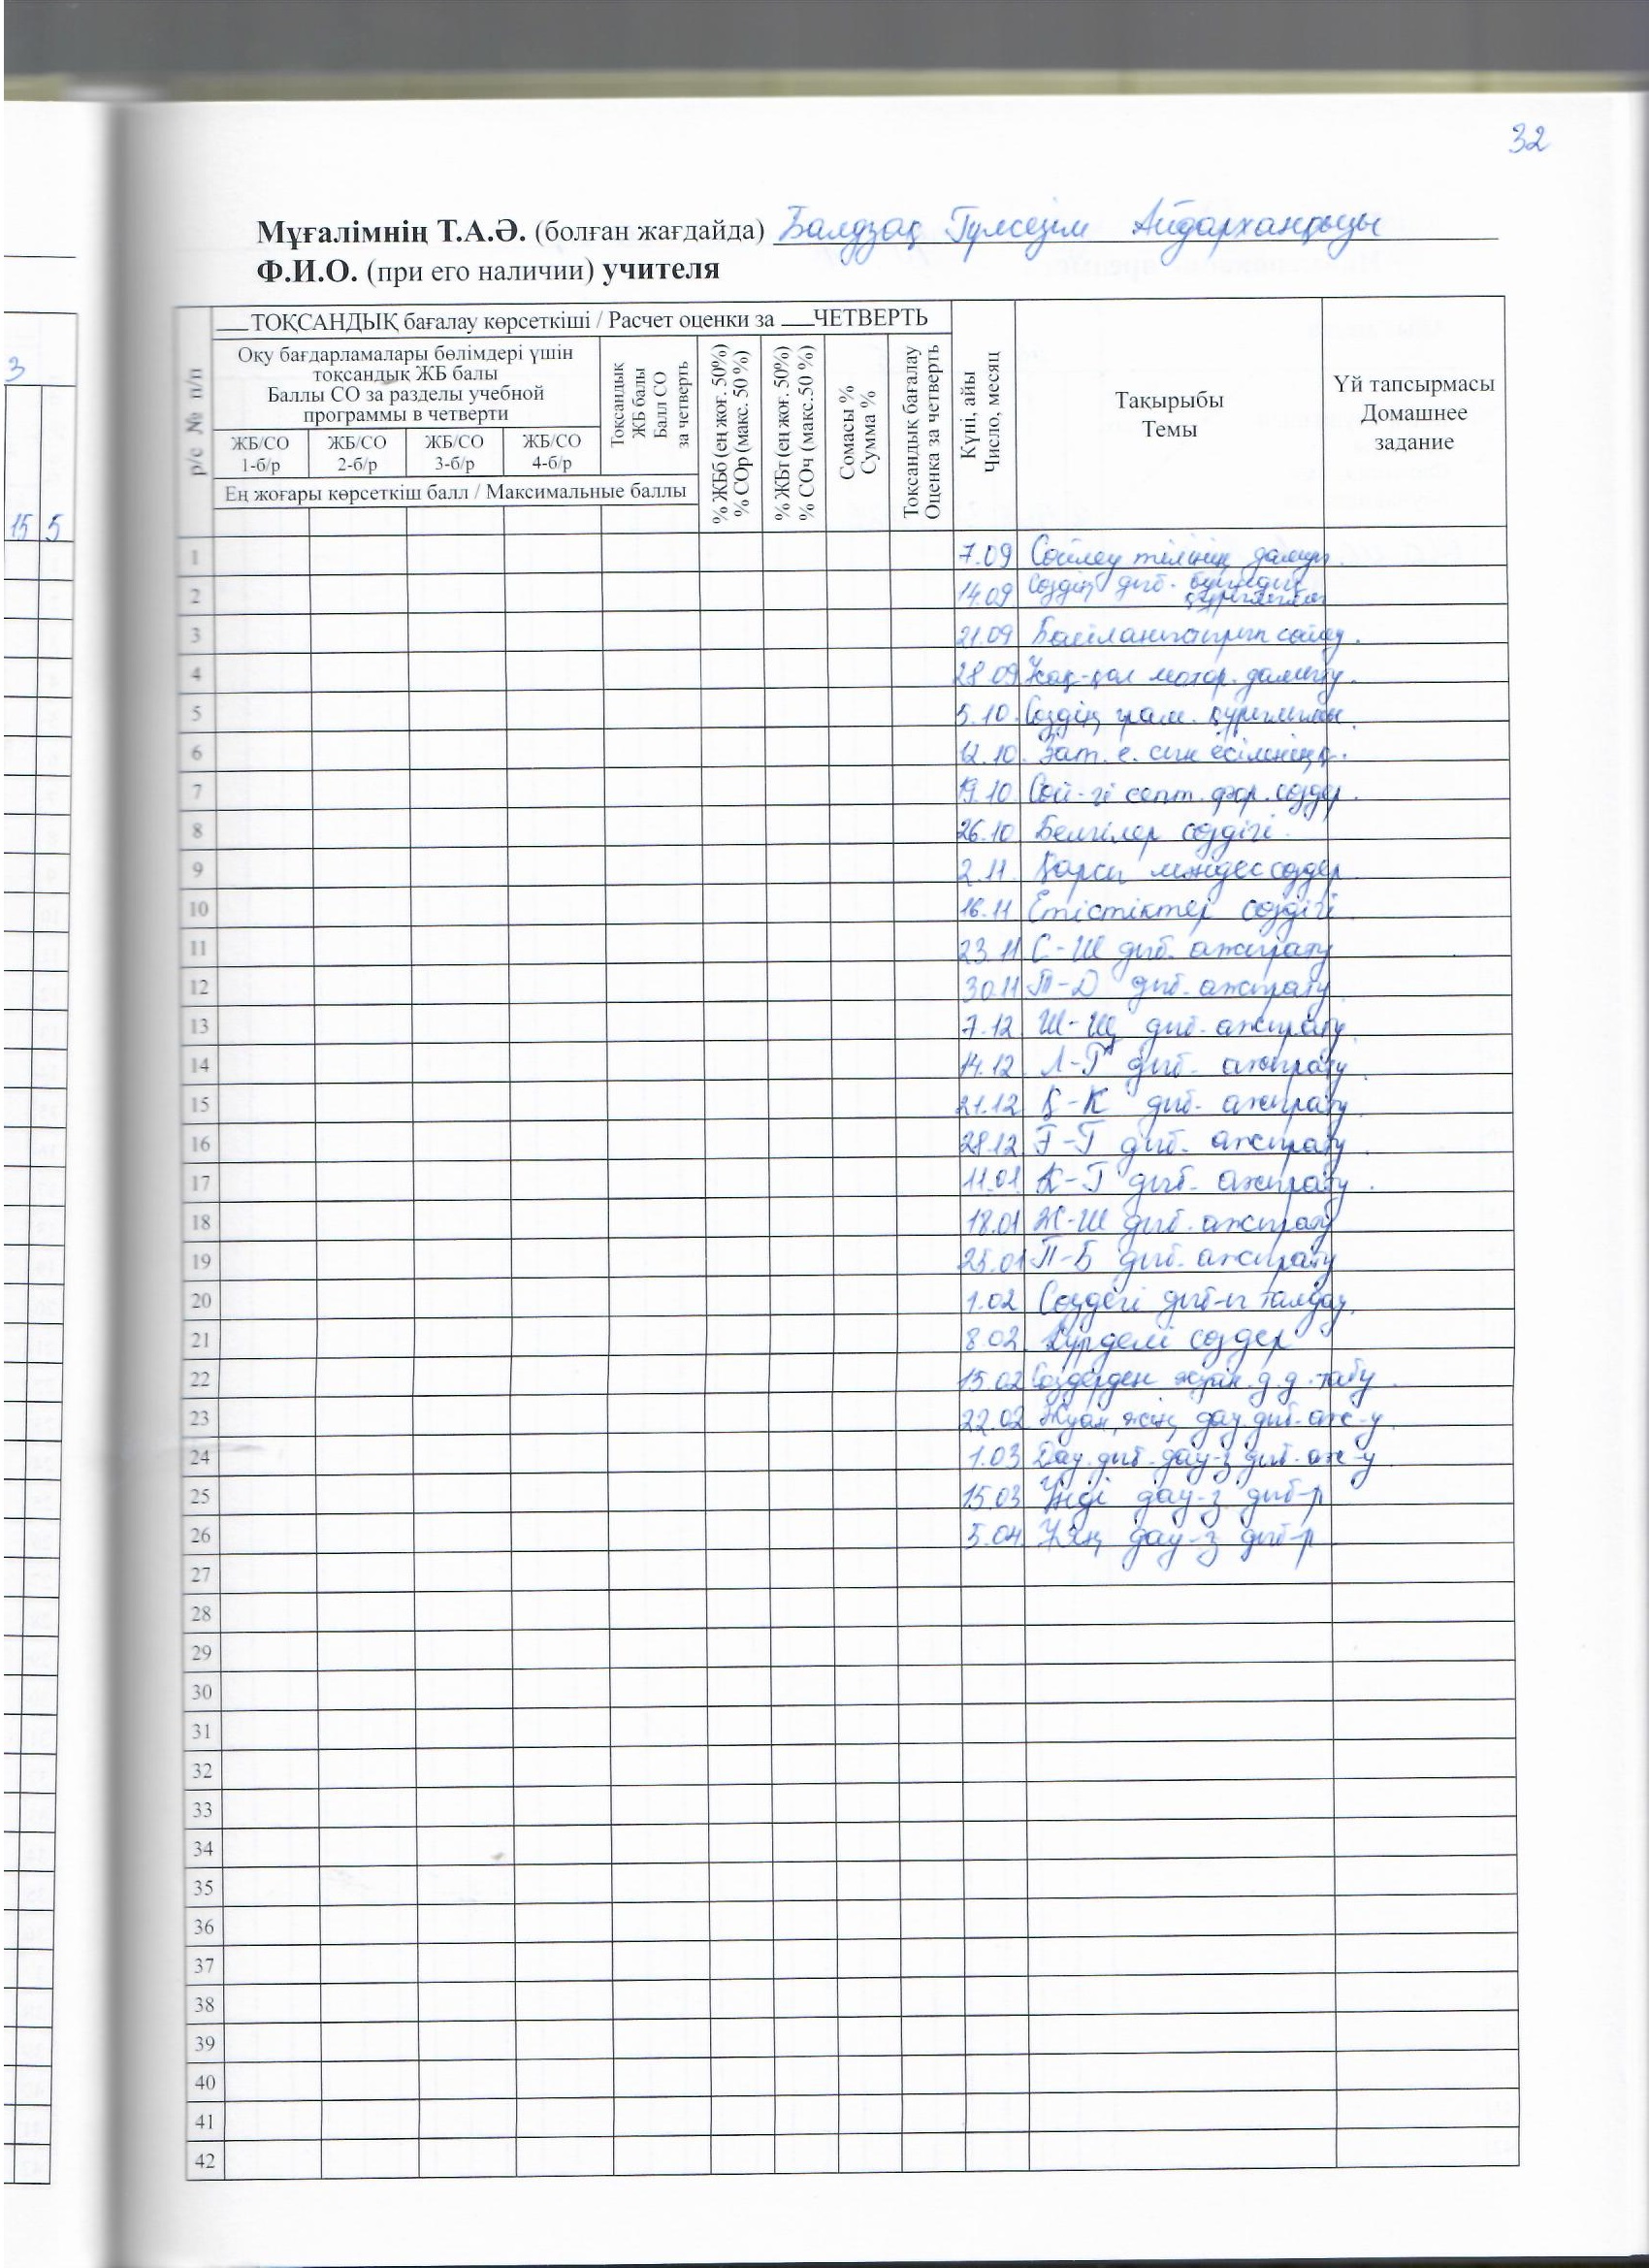 32
Мұғалімнің Т.А.Ә. (болған жағдайда) Балдзақ Гүлсезім Айдарханқызы
Ф.И.О. (при его наличии) учителя
3
15 5
р/с № п/п
___ТОҚСАНДЫҚ бағалау көрсеткіші / Расчет оценки за ___ЧЕТВЕРТЬ
Оқу бағдарламалары бөлімдері үшін
тоқсандық ЖБ балы
Баллы СО за разделы учебной
программы в четверти
ЖБ/СО 1-б/р
ЖБ/СО 2-б/р
ЖБ/СО 3-б/р
ЖБ/СО 4-б/р
Ең жоғары көрсеткіш балл / Максимальные баллы
Тоқсандық
ЖБ балы
Балл СО
за четверть
% ЖБб (ең жоғ. 50%)
% СОр (макс. 50 %)
% ЖБт (ең жоғ. 50%)
% СОч (макс.50 %)
Сомасы %
Сумма %
Тоқсандық бағалау
Оценка за четверть
Күні, айы
Число, месяц
Тақырыбы
Темы
Үй тапсырмасы
Домашнее
задание
1 7.09 Сөйлеу тілінің дамуы.
2 14.09 Сөздің дыб. буындық құрылымы
3 21.09 Байланыстырып сөйлеу.
4 28.09 Ұсақ-қол мотор. дамыту.
5 5.10. Сөздің грам. құрылымы.
6 12.10. Зат. е. сын есімнің қ.
7 19.10. Сөй-гі септ. фор. сөздер.
8 26.10 Белгілер сөздігі.
9 2.11. Қарсы мәндес сөздер.
10 16.11 Етістіктер сөздігі.
11 23.11 С-Ш дыб. ажырату
12 30.11 Т-Д дыб. ажырату.
13 7.12 Ш-Щ дыб. ажырату.
14 14.12. Л-Р дыб. ажырату.
15 21.12 Қ-К дыб. ажырату.
16 28.12 Ғ-Г дыб. ажырату.
17 11.01 К-Г дыб. ажырату.
18 18.01 Ж-Ш дыб. ажырату
19 25.01 П-Б дыб. ажырату
20 1.02 Сөздегі дыб-ы талдау.
21 8.02. Күрделі сөздер
22 15.02 Сөздерден жуан. д.д. табу.
23 22.02 Жуан, жің. дау дыб. аж-у.
24 1.03 Дау. дыб. дау-з дыб. аж-у.
25 15.03 Үнді дау-з дыб-р
26 5.04 Ұяң дау-з дыб-р
27
28
29
30
31
32
33
34
35
36
37
38
39
40
41
42